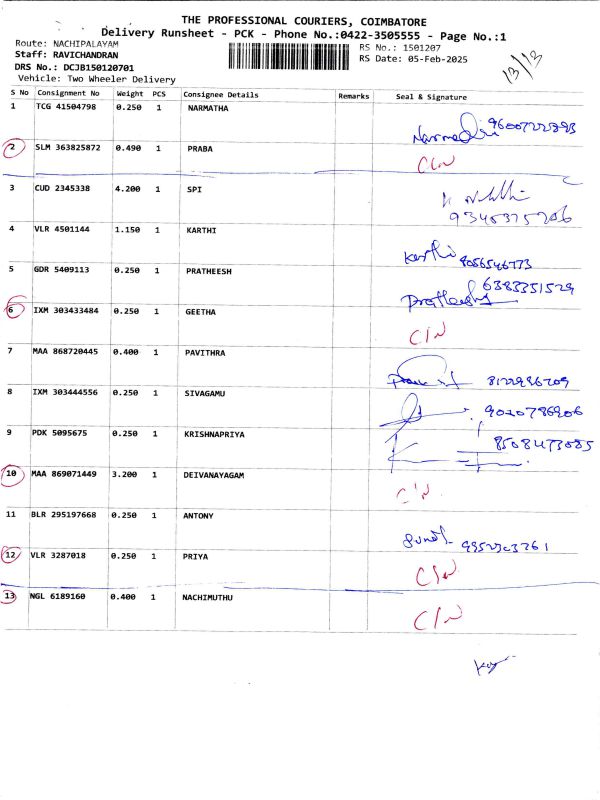 THE PROFESSIONAL COURIERS, COIMBATORE
Delivery Runsheet - PCK - Phone No.:0422-3505555 - Page No.:1
Route: NACHIPALAYAM
RS No.: 1501207
Staff: RAVICHANDRAN
RS Date: 05-Feb-2025
DRS No.: DCJB150120701
13/13
Vehicle: Two Wheeler Delivery
S No Consignment No Weight PCS Consignee Details Remarks Seal & Signature
1 TCG 41504798 0.250 1 NARMATHA
2 SLM 363825872 0.490 1 PRABA C/N
3 CUD 2345338 4.200 1 SPI
4 VLR 4501144 1.150 1 KARTHI Karthi 9056546773
5 GDR 5409113 0.250 1 PRATHEESH 6383351529
6 IXM 303433484 0.250 1 GEETHA C/N
7 MAA 868720445 0.400 1 PAVITHRA
8 IXM 303444556 0.250 1 SIVAGAMU
9 PDK 5095675 0.250 1 KRISHNAPRIYA 8508473085
10 MAA 869071449 3.200 1 DEIVANAYAGAM C/N
11 BLR 295197668 0.250 1 ANTONY
12 VLR 3287018 0.250 1 PRIYA C/N
13 NGL 6189160 0.400 1 NACHIMUTHU C/N